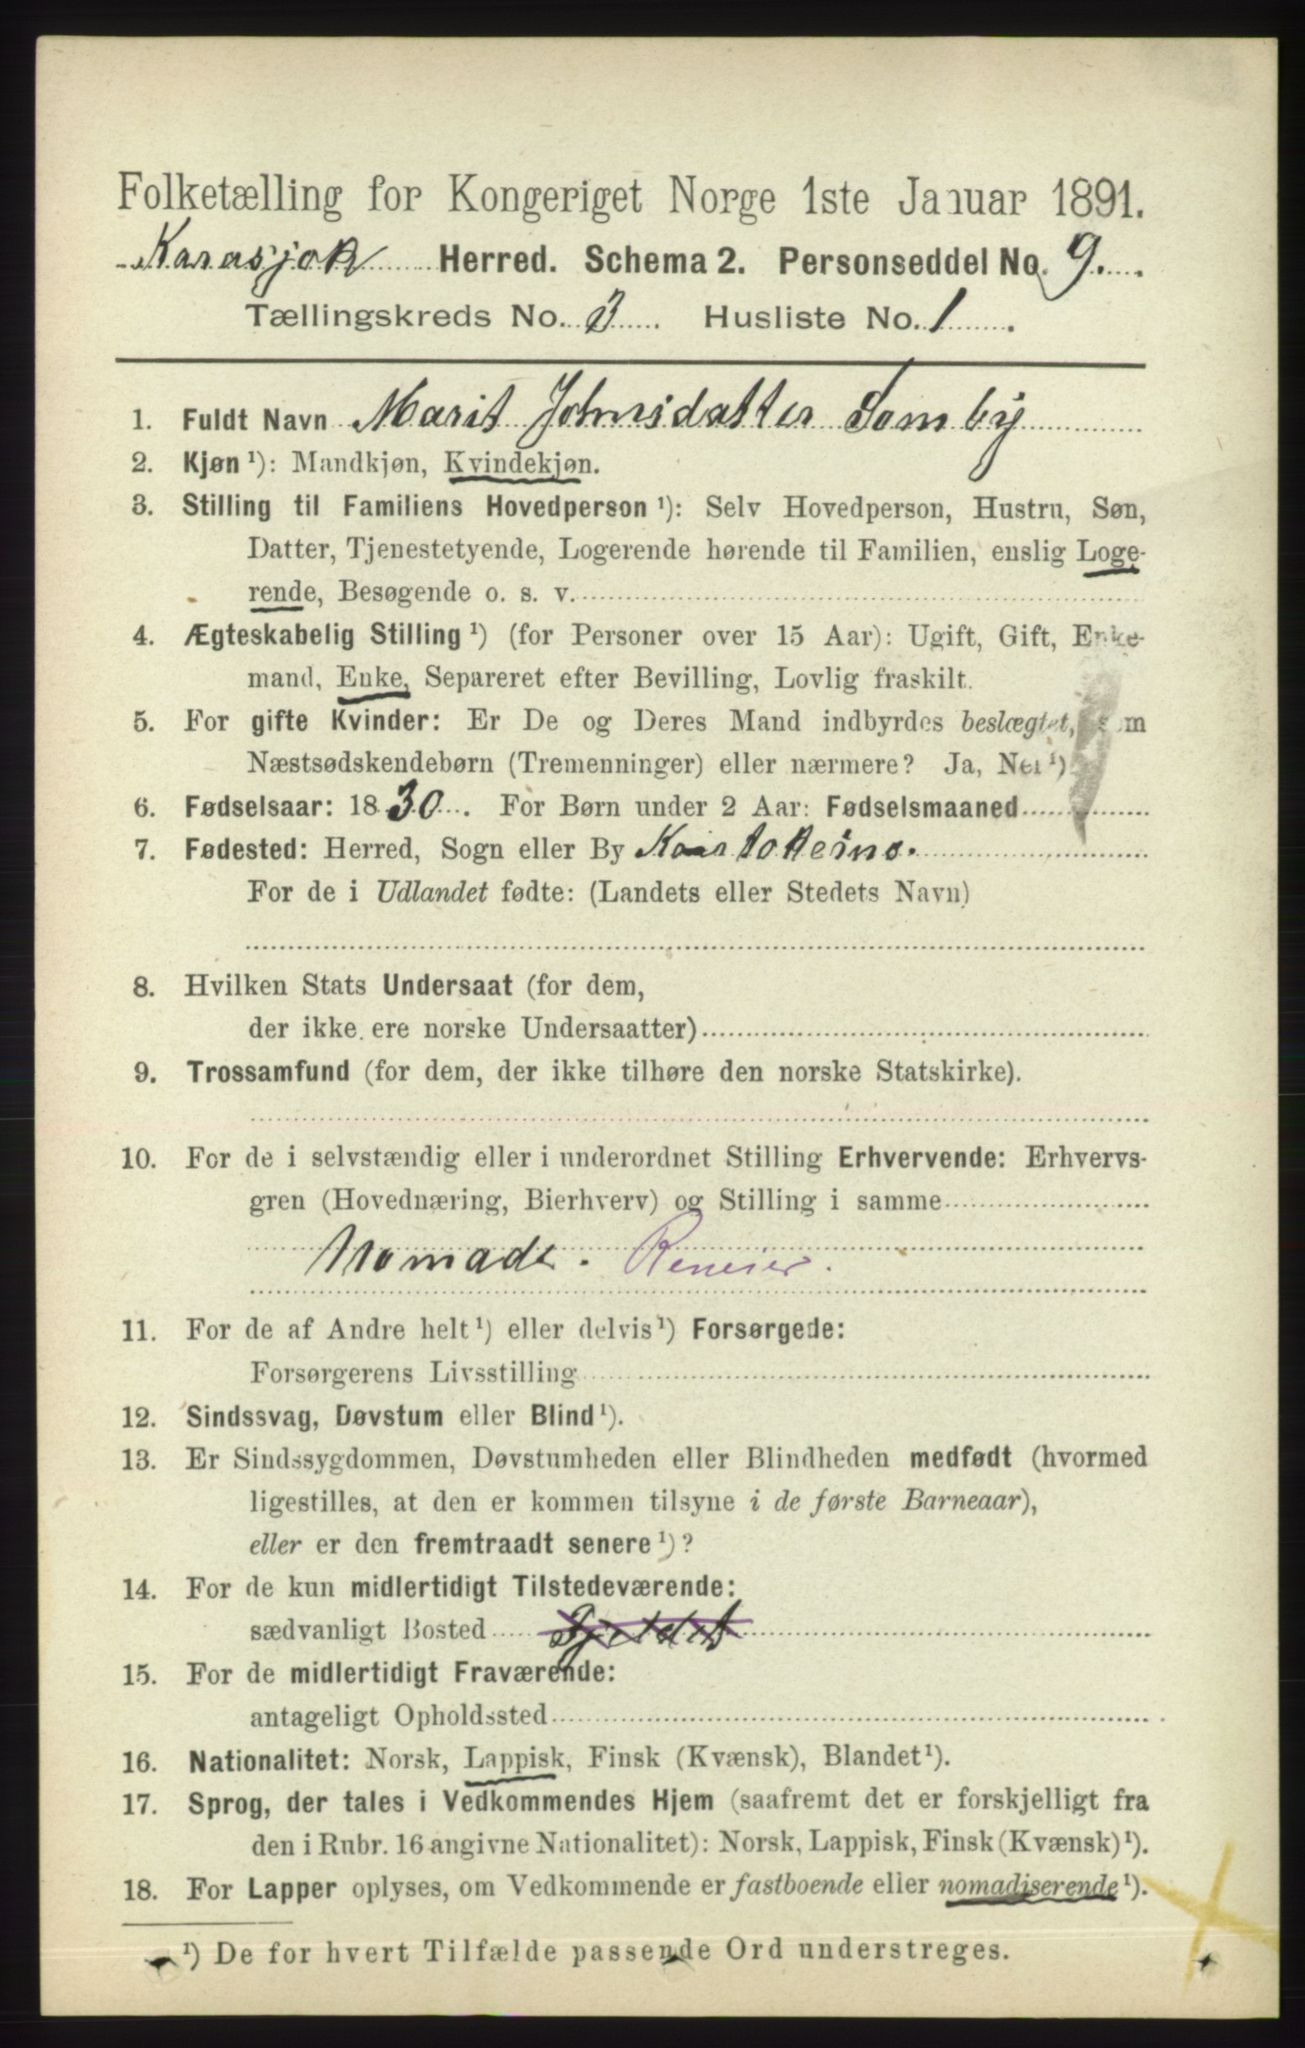 Folketælling for Kongeriget Norge 1ste Januar 1891.
Karasjok Herred. Schema 2. Personseddel No. 9.
Tællingskreds No. 3 Husliste No. 1
1. Fuldt Navn Marit Johnsdatter Somby
2. Kjøn ¹): Mandkjøn, Kvindekjøn.
3. Stilling til Familiens Hovedperson ¹): Selv Hovedperson, Hustru, Søn,
Datter, Tjenestetyende, Logerende hørende til Familien, enslig Loge-
rende, Besøgende o. s. v.
4. Ægteskabelig Stilling ¹) (for Personer over 15 Aar): Ugift, Gift, Enke-
mand, Enke, Separeret efter Bevilling, Lovlig fraskilt.
5. For gifte Kvinder: Er De og Deres Mand indbyrdes beslægtet, som
Næstsødskendebørn (Tremenninger) eller nærmere? Ja, Nei ¹)
6. Fødselsaar: 1830. For Børn under 2 Aar: Fødselsmaaned
7. Fødested: Herred, Sogn eller By Kautokeino.
For de i Udlandet fødte: (Landets eller Stedets Navn)
8. Hvilken Stats Undersaat (for dem,
der ikke ere norske Undersaatter)
9. Trossamfund (for dem, der ikke tilhøre den norske Statskirke).
10. For de i selvstændig eller i underordnet Stilling Erhvervende: Erhvervs-
gren (Hovednæring, Bierhverv) og Stilling i samme
Nomade. Reneier.
11. For de af Andre helt ¹) eller delvis ¹) Forsørgede:
Forsørgerens Livsstilling
12. Sindssvag, Døvstum eller Blind ¹).
13. Er Sindssygdommen, Døvstumheden eller Blindheden medfødt (hvormed
ligestilles, at den er kommen tilsyne i de første Barneaar),
eller er den fremtraadt senere ¹)?
14. For de kun midlertidigt Tilstedeværende:
sædvanligt Bosted Fjeldet
15. For de midlertidigt Fraværende:
antageligt Opholdssted
16. Nationalitet: Norsk, Lappisk, Finsk (Kvænsk), Blandet ¹).
17. Sprog, der tales i Vedkommendes Hjem (saafremt det er forskjelligt fra
den i Rubr. 16 angivne Nationalitet): Norsk, Lappisk, Finsk (Kvænsk) ¹).
18. For Lapper oplyses, om Vedkommende er fastboende eller nomadiserende ¹).
¹) De for hvert Tilfælde passende Ord understreges.